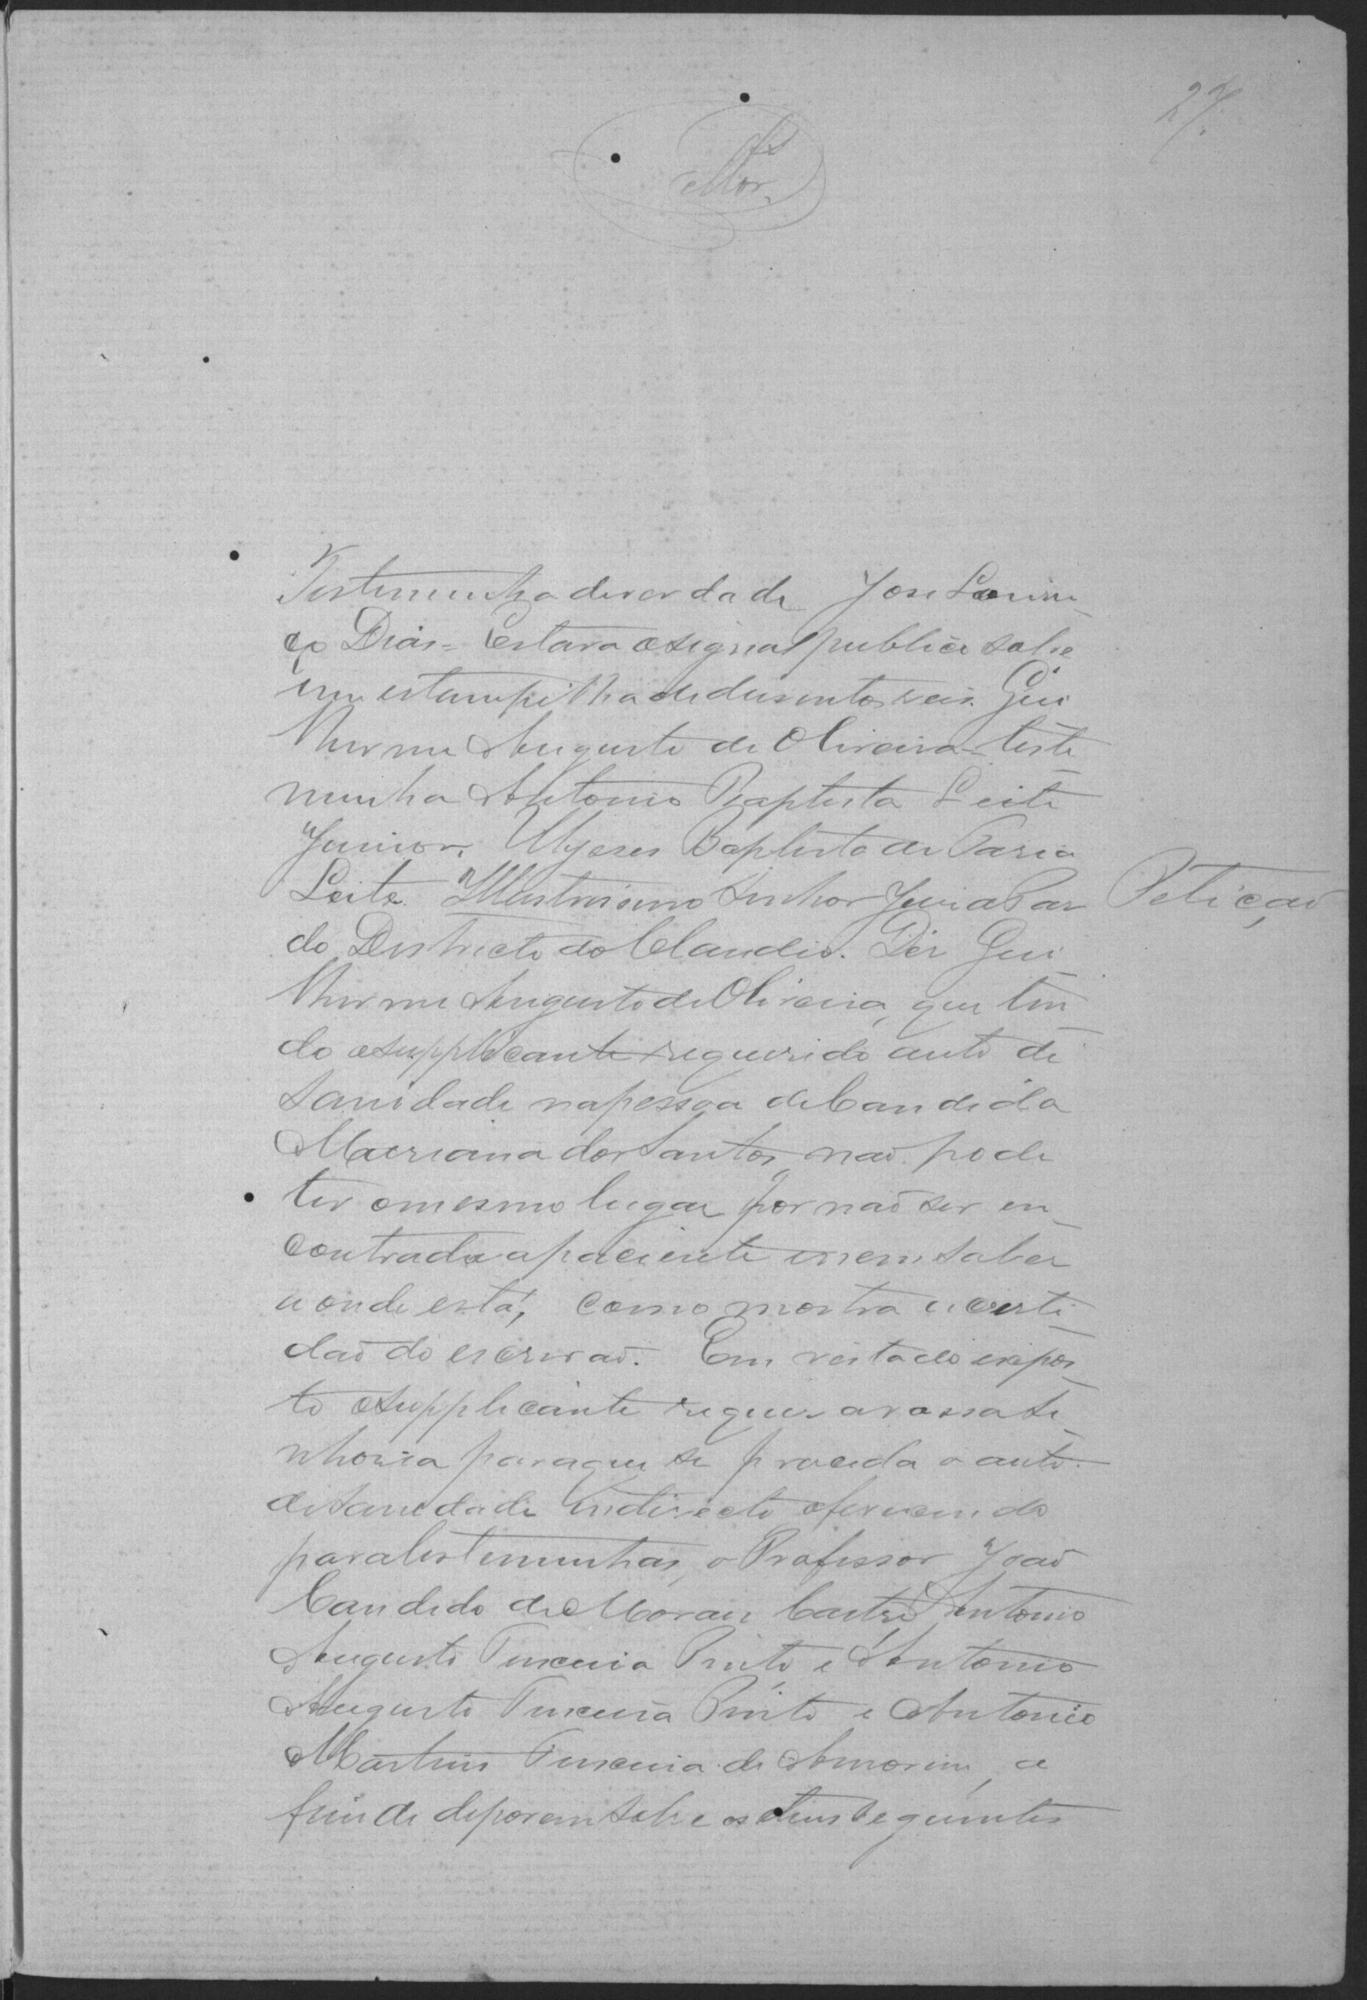 27.
Fls
Mor.
Testemunha da verdade José Louren-
ço Dias = Estava o signal publico sobre
um estampilha de dusentos reis. Gui
lherme Augusto de Oliveira - teste
munha Antonio Baptista Leite
Junior, Ulysses Baptista de Faria
Leite. Illustrissimo Senhor Juiz de Paz
Petição
do Districto do Claudio. Diz Gui
lherme Augusto de Oliveira, que ten
do o supplicante requerido auto de
sanidade na pessoa de Candida
Marciana dos Santos, não pode
ter o mesmo lugar por não ser en-
contrada a paciente e nem saber
aonde está, como mostra a certi-
dão do escrivão. Em vista do expos-
to o supplicante requer a vossa se-
nhoria para que se proceda o auto
de sanidade indirecto oferecendo
para testemunhas, o Professor João
Candido de Moraes Castro, Antonio
Augusto Teixeira Pinto e Antonio
Augusto Teixeira Pinto e Antonio
Martins Teixeira de Amorim, a
fim de deporem sobre os itens seguintes